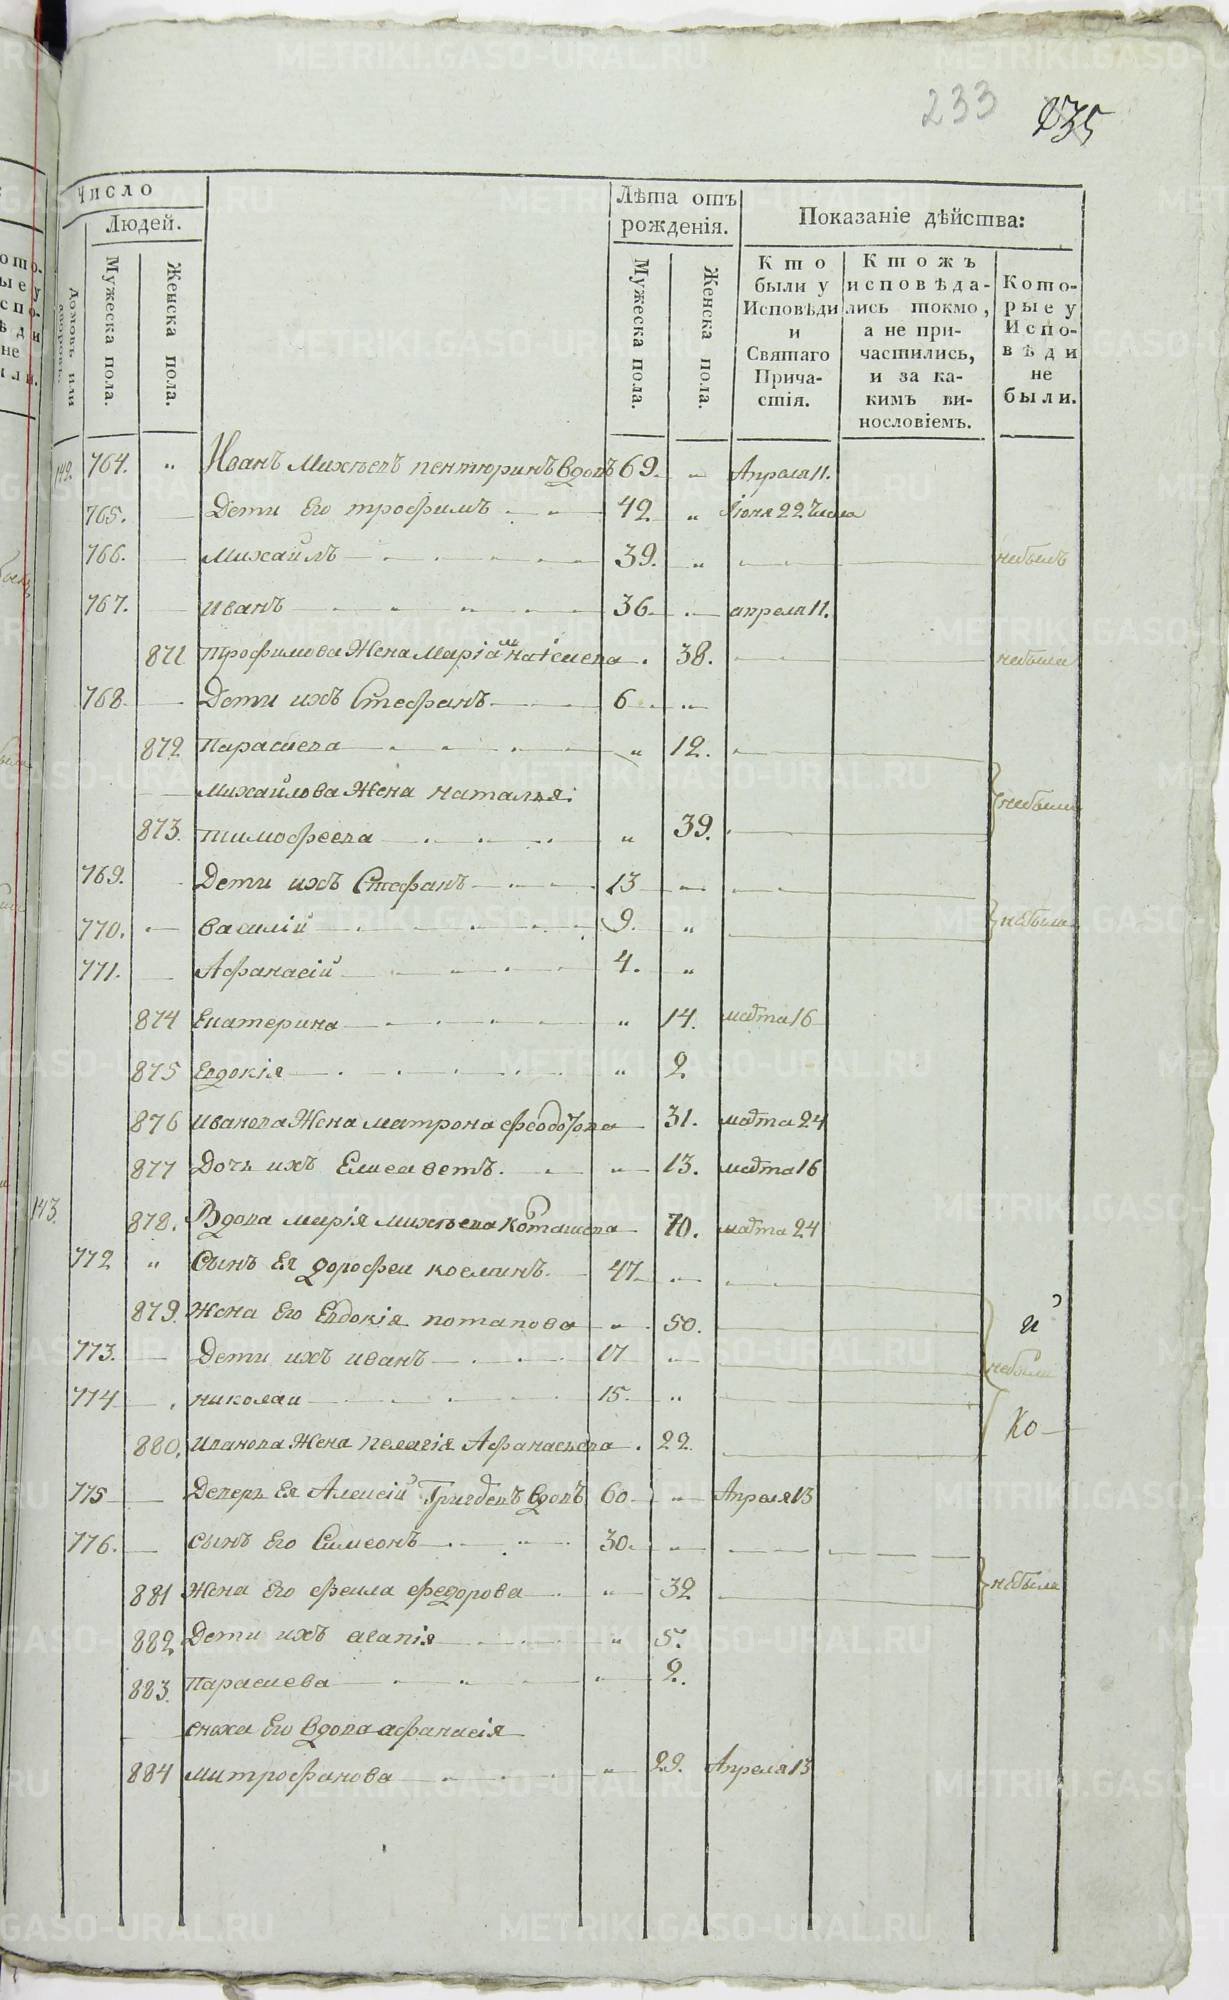 233 235
Число
Людей.
Лѣта отъ рожденія.
Показаніе дѣйства:
Домовъ или дворовъ.
Мужеска пола.
Женска пола.
Мужеска пола.
Женска пола.
Кто были у Исповѣди и Святаго Причастія.
Ктожъ исповѣдались токмо, а не причастились, и за какимъ винословіемъ.
Которые у Исповѣди не были.
142. 764. " Иванъ Михѣевъ пентюринъ вдовъ 69. " Апреля 11.
765. Дети Его трофимъ 42 " Іюня 22 числа
766. михайлъ 39. " небылъ
767. иванъ 36 " апреля 11.
871 трофимова Жена Марія 38. небыла
768 Дети ихъ Стефанъ 6 "
872 Парасчева " 12.
михайлова Жена наталья
873. тимофеева " 39. небыли
769. Дети ихъ Стефанъ 13 "
770. василій 9. " небыли
771. Афанасій 4. "
874 Екатерина " 14. марта 16
875 Евдокія " 2.
876 иванова Жена матрона феодотова 31. марта 24
877 Дочь ихъ Елисаветъ. " 13. марта 16
143. 878. Вдова марія михѣева 70. марта 24
772 " Сынъ Ея дорофеи косминъ. 47 "
879. Жена Его Евдокія потапова " 50.
й
773. Дети ихъ иванъ 17 " небыли
774 николаи 15 "
Ко
880. иванова Жена пелагія Афанасьева 22
775 Деверь Ея Алексій вдовъ 60 " Апреля 13
776. сынъ Его Симеонъ 30. "
881 Жена Его фекла федорова " 32 небыли
882 Дети ихъ агапія " 5.
883. Парасчева " 2.
сноха Его вдова афанасія
884 митрофанова " 22. Апреля 13
METRIKI.GASO-URAL.RU